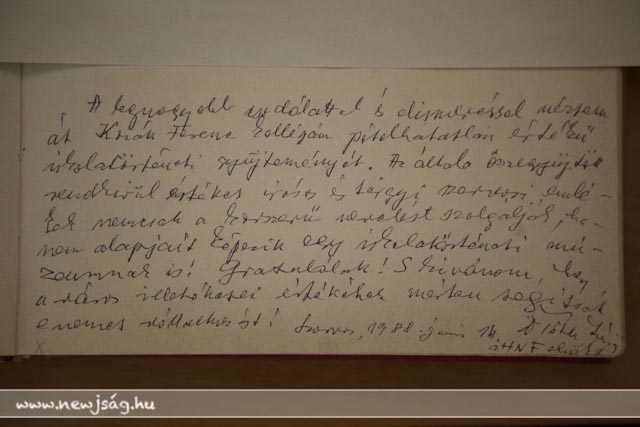 A legnagyobb csodálattal és elismeréssel néztem
át Kozák Ferenc kollégám pótolhatatlan értékű
iskolatörténeti gyűjteményét. Az általa összegyűjtött
rendkívül értékes írásos és tárgyi szarvasi emlé-
kek nemcsak a korszerű nevelést szolgálják, ha-
nem alapjait képezik egy iskolatörténeti mú-
zeumnak is! Gratulálok! S kívánom, hogy
a város illetékesei értékéhez mérten segítsék
e nemes vállalkozást! Szarvas, 1988. június 14. Tóth
ÁHNF
www.newjság.hu